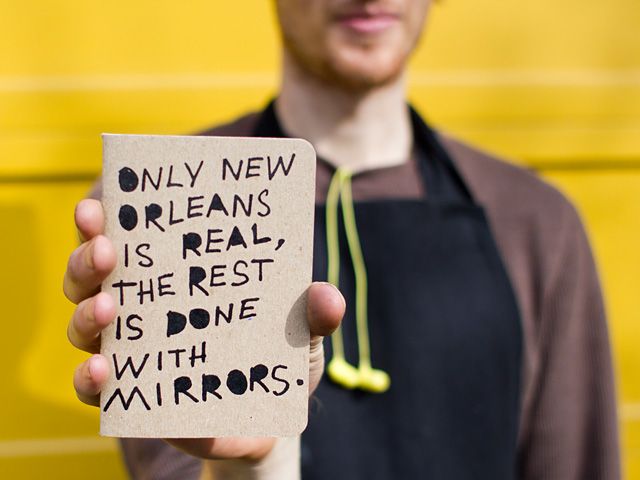 ONLY NEW
ORLEANS
IS REAL,
THE REST
IS DONE
WITH
MIRRORS.